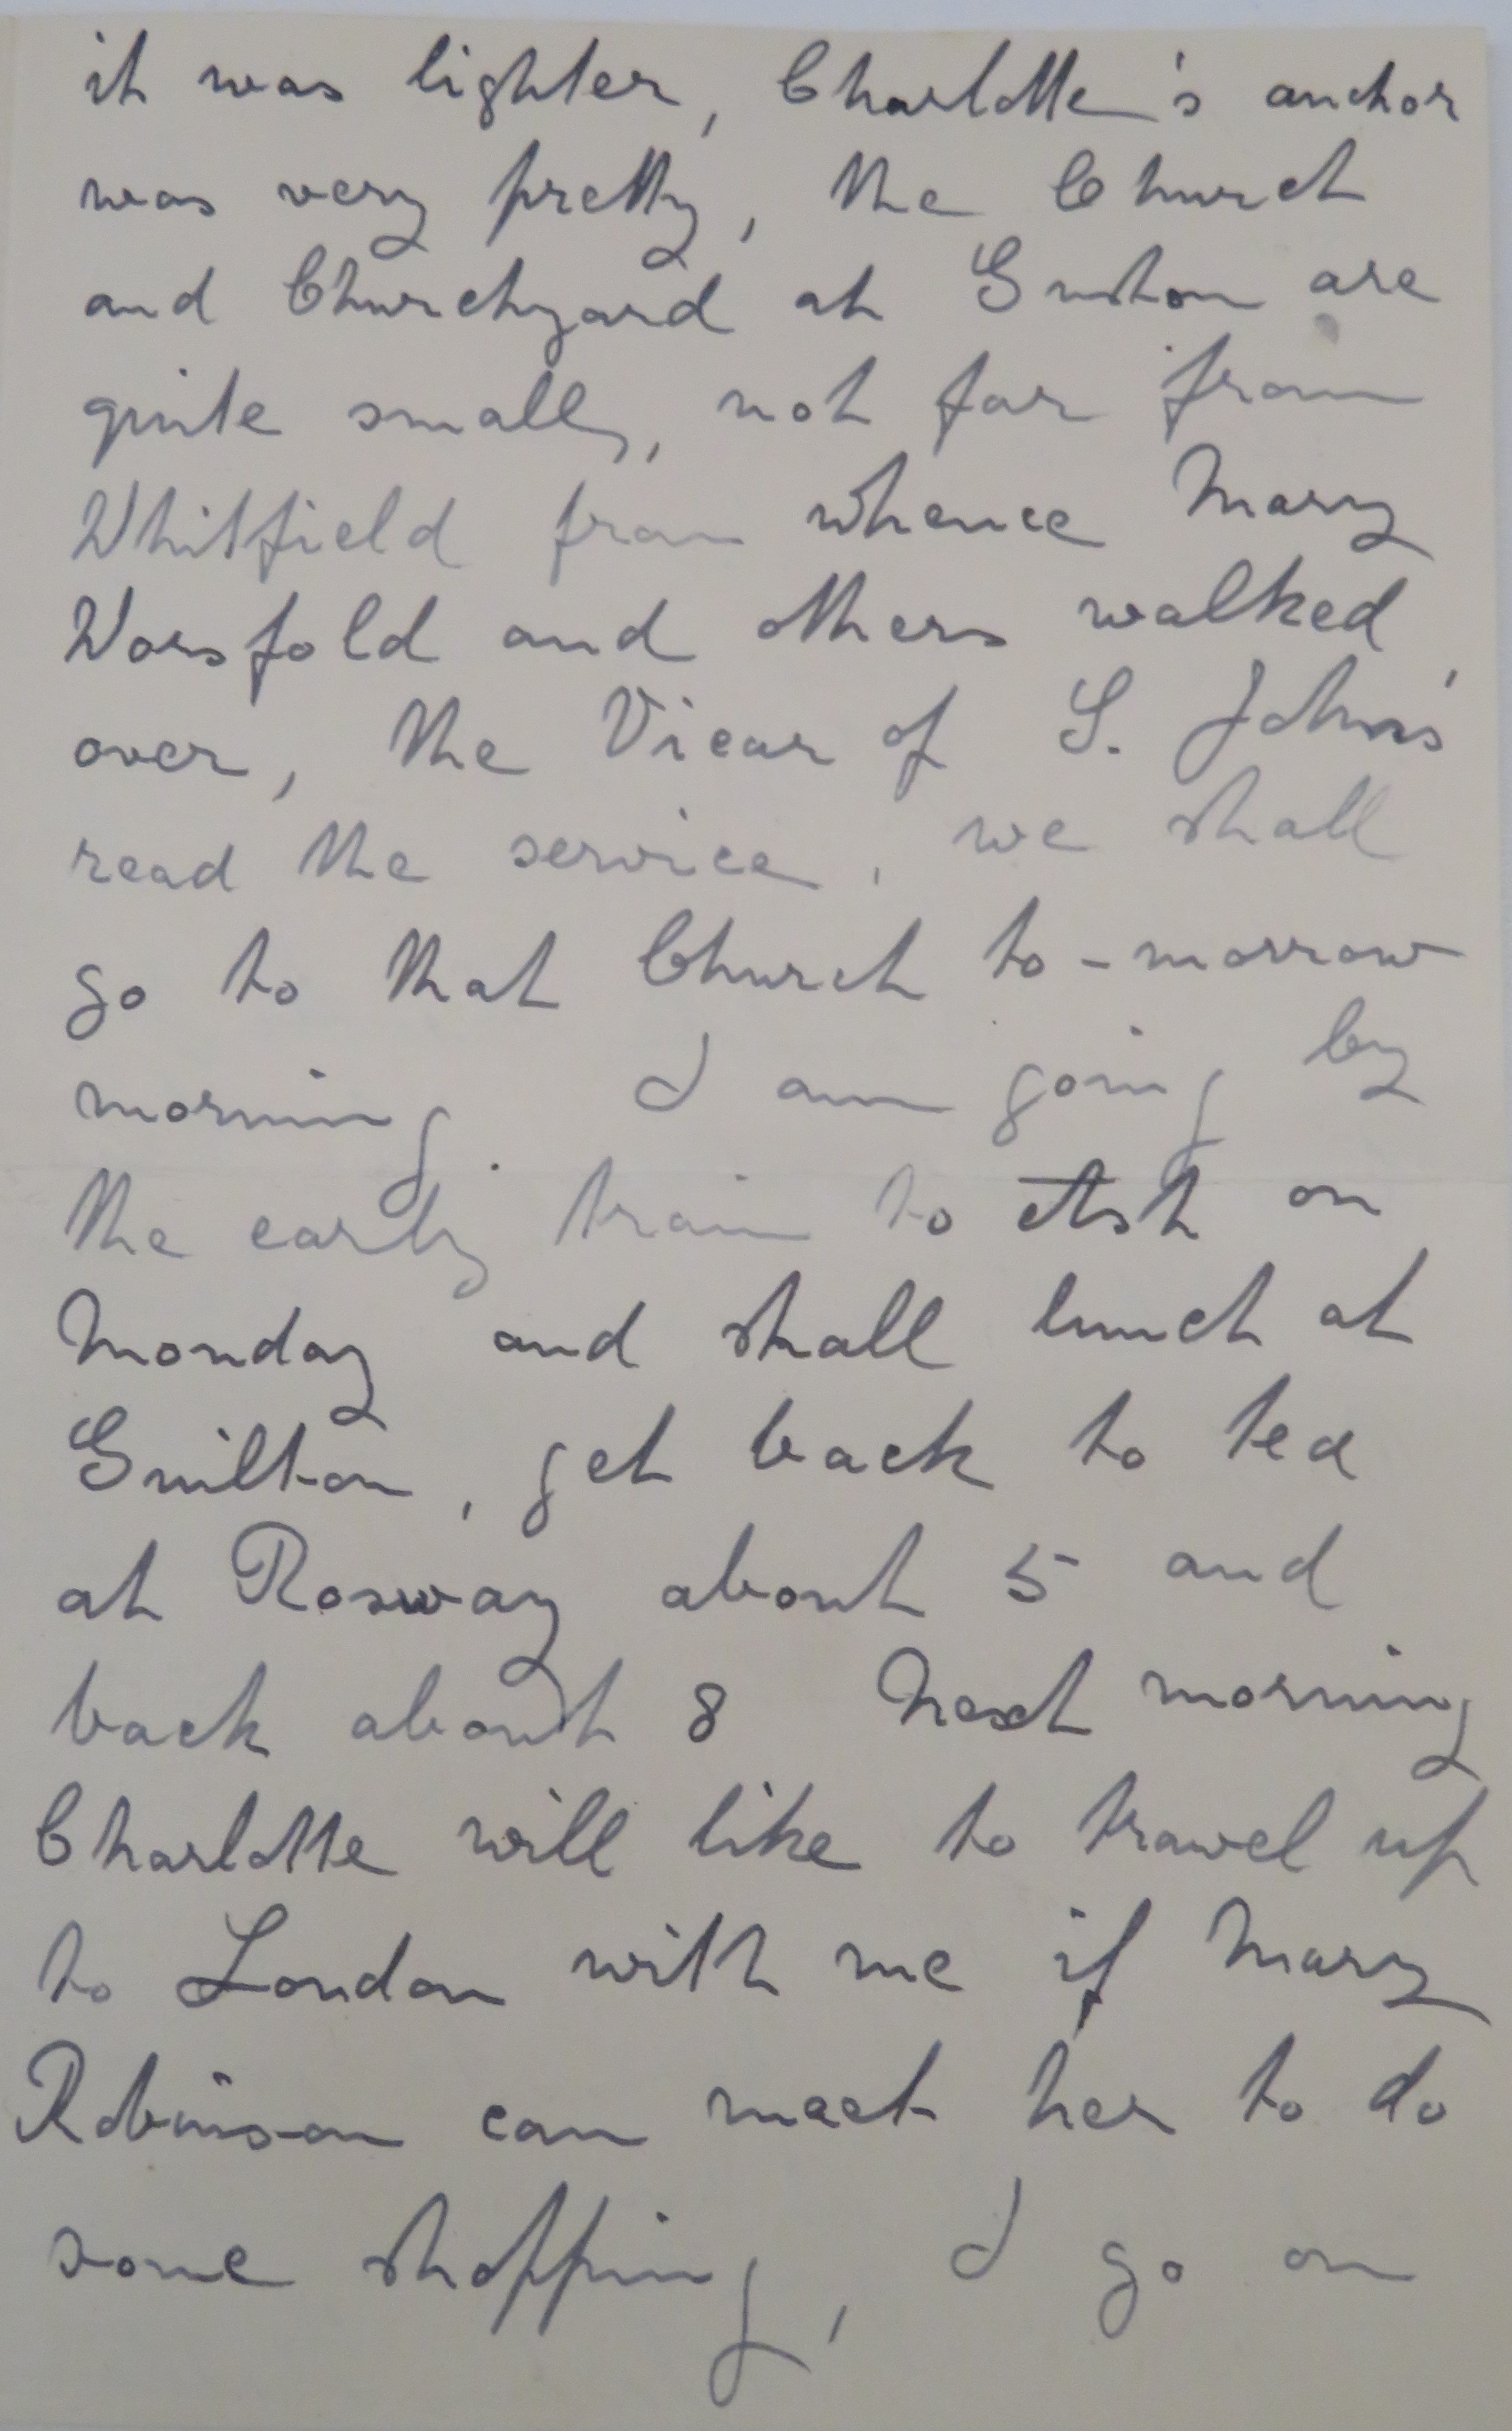 it was lighter, Charlotte's anchor
was very pretty, the Church
and Churchyard at Guston are
quite small, not far from
Whitfield from whence Mary
Worsfold and others walked
over, the Vicar of S. John's
read the service, we shall
go to that Church to-morrow
morning. I am going by
the early train to Ash on
Monday and shall lunch at
Guilton, get back to tea
at Rosway about 5 and
back about 8 Next morning
Charlotte will like to travel up
to London with me if Mary
Robinson can meet her to do
some shopping, I go on